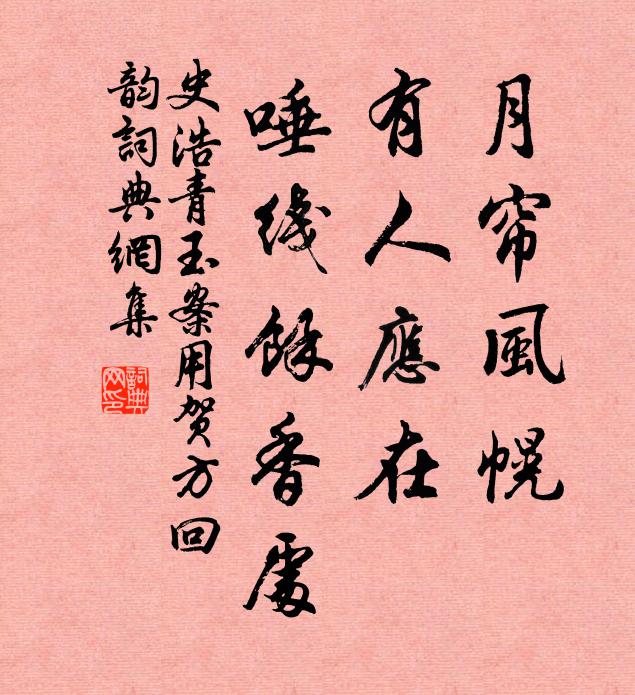 月帘風幌
有人應在
唾綫餘香處
史浩青玉案用贺方回
韵詞典網集
詞典
网印